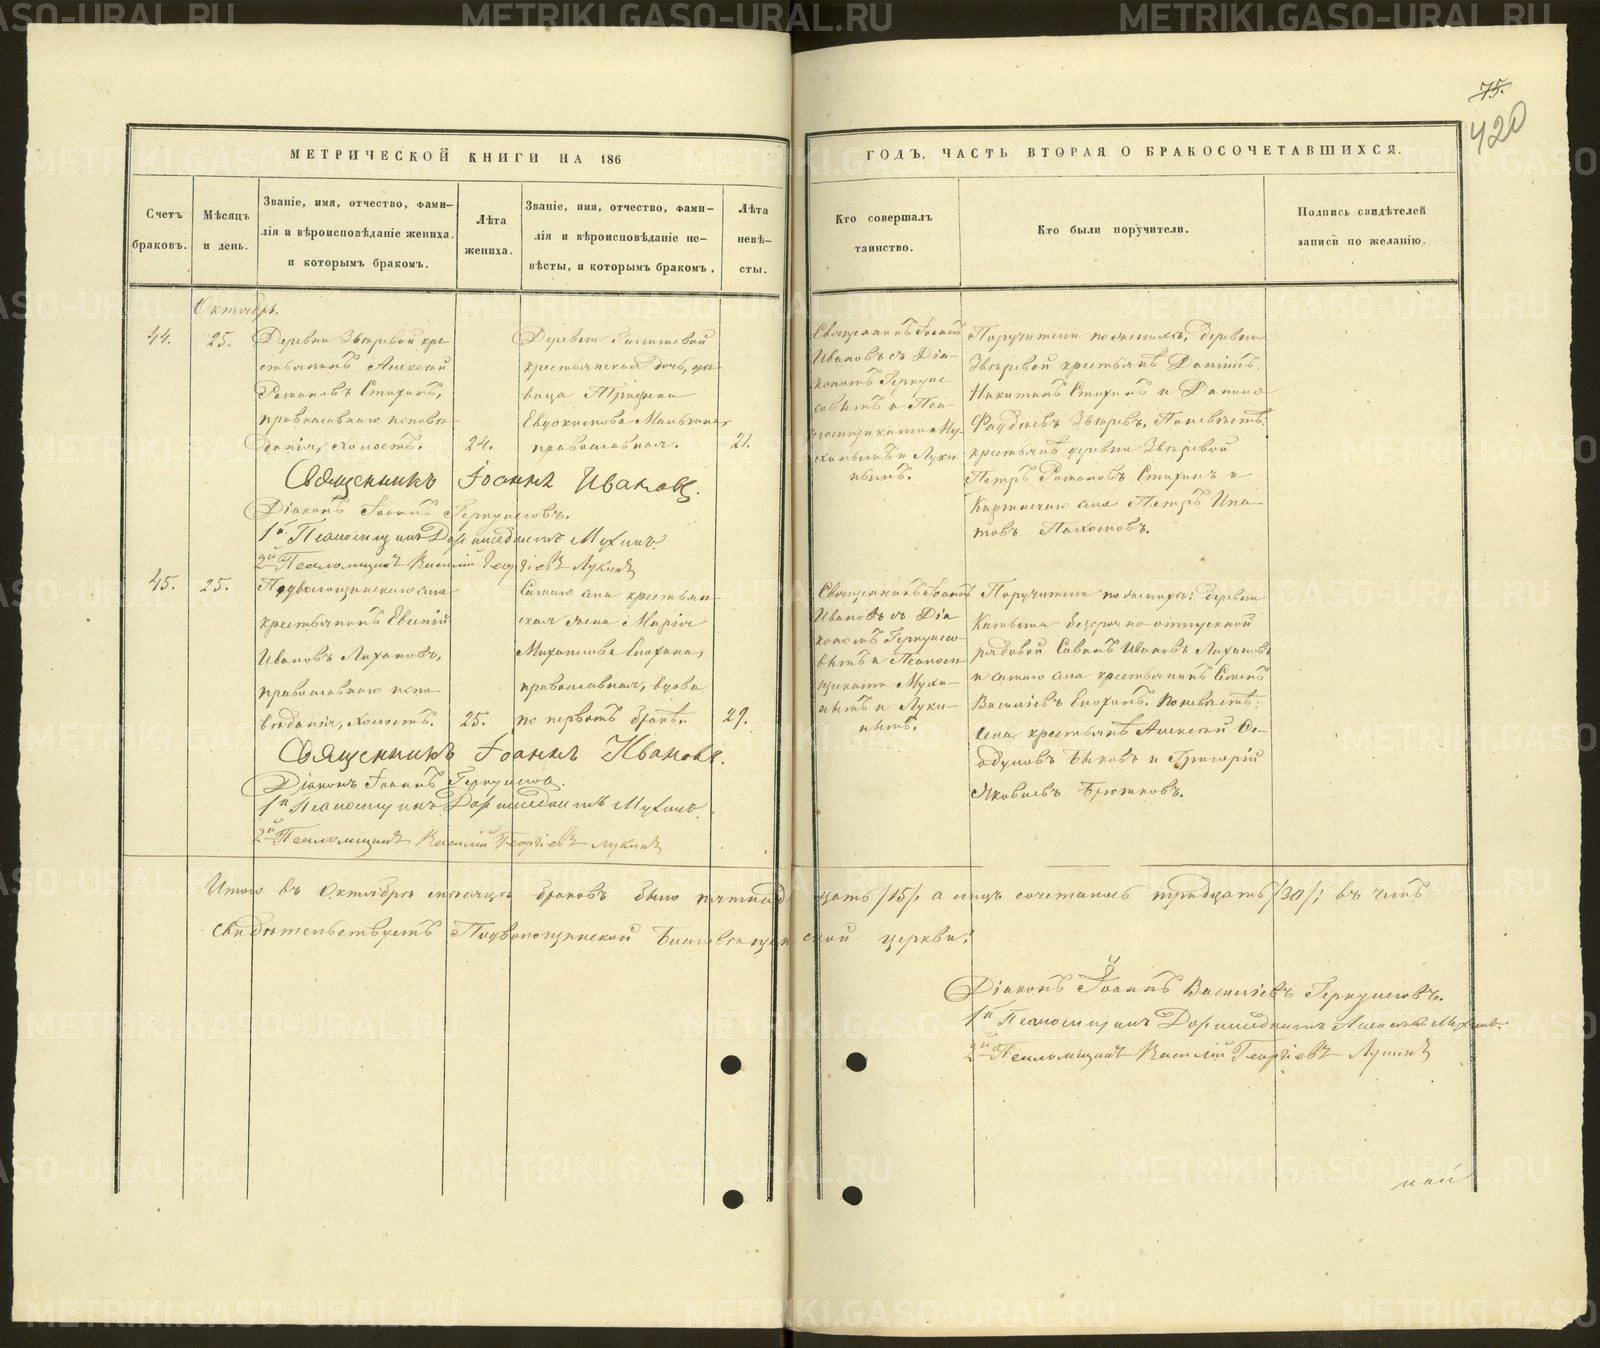 75.
420
МЕТРИЧЕСКОЙ КНИГИ НА 186
ГОДЪ, ЧАСТЬ ВТОРАЯ О БРАКОСОЧЕТАВШИХСЯ.
Счетъ
браковъ.
Мѣсяцъ
и день.
Званіе, имя, отчество, фами-
лія и вѣроисповѣданіе жениха.
и которымъ бракомъ.
Лѣта
жениха.
Званіе, имя, отчество, фами-
лія и вѣроисповѣданіе не-
вѣсты, и которымъ бракомъ,
Лѣта
невѣ-
сты.
Кто совершалъ
таинство.
Кто были поручители.
Подпись свидѣтелей
записи по желанію.
Октябрь.
44.
25.
Деревни Звѣревой кре-
стьянинъ Алексѣй
Романовъ Епохинъ,
православнаго исповѣ-
данія, холостъ.
24.
Деревни
крестьянская дочь, дѣ-
вица
Евдокимова
православная.
21.
Священникъ Іоаннъ
Ивановъ съ Діа-
кономъ Геркулес-
овымъ и Пса-
ломщиками Му-
хинымъ и Луки-
нымъ.
Поручители по женихѣ; деревни
Звѣревой крестьяне Даніилъ
Никитинъ Епохинъ и
Звѣревъ, По невѣстѣ;
крестьяне деревни Звѣревой
Петръ Романовъ Епохинъ и
села Петръ Ипа-
товъ Пахомовъ.
Священникъ Іоаннъ Ивановъ.
Діаконъ Іоаннъ Геркулесовъ.
1й Псаломщикъ Доримедонтъ Мухинъ.
2й Псаломщикъ Василій Георгіевъ Лукинъ
45.
25.
Подволошинскаго села
крестьянинъ Евсевій
Ивановъ Лихановъ,
православнаго испо-
вѣданія, холостъ.
25.
Самаго села крестьян-
ская жена Марія
Михаилова Епохина,
православная, вдова
по первомъ бракѣ.
29.
Священникъ Іоаннъ
Ивановъ съ Діа-
кономъ Геркулесо-
вымъ и Псалом-
щиками Мухи-
нымъ и Луки-
нымъ.
Поручители по женихѣ; деревни
безсрочно-отпускной
рядовой Савинъ Ивановъ Лихановъ
и самаго села крестьянинъ
Василіевъ Епохинъ. По невѣстѣ;
села крестьяне Алексѣй Ѳе-
одуловъ Быковъ и Григорій
Яковлевъ
Священникъ Іоаннъ Ивановъ.
Діаконъ Іоаннъ Геркулесовъ.
1й Псаломщикъ Доримедонтъ Мухинъ.
2й Псаломщикъ Василій Георгіевъ Лукинъ
Итого въ Октябрѣ мѣсяцѣ браковъ было пятнадцать /15/, а лицъ сочеталось тридцать /30/; въ чемъ
свидѣтельствуетъ Подволошинской Благовѣщенской церкви:
Діаконъ Іоаннъ Василіевъ Геркулесовъ.
1й Псаломщикъ Доримедонтъ Алексѣевъ Мухинъ.
2й Псаломщикъ Василій Георгіевъ Лукинъ
METRIKI.GASO-URAL.RU